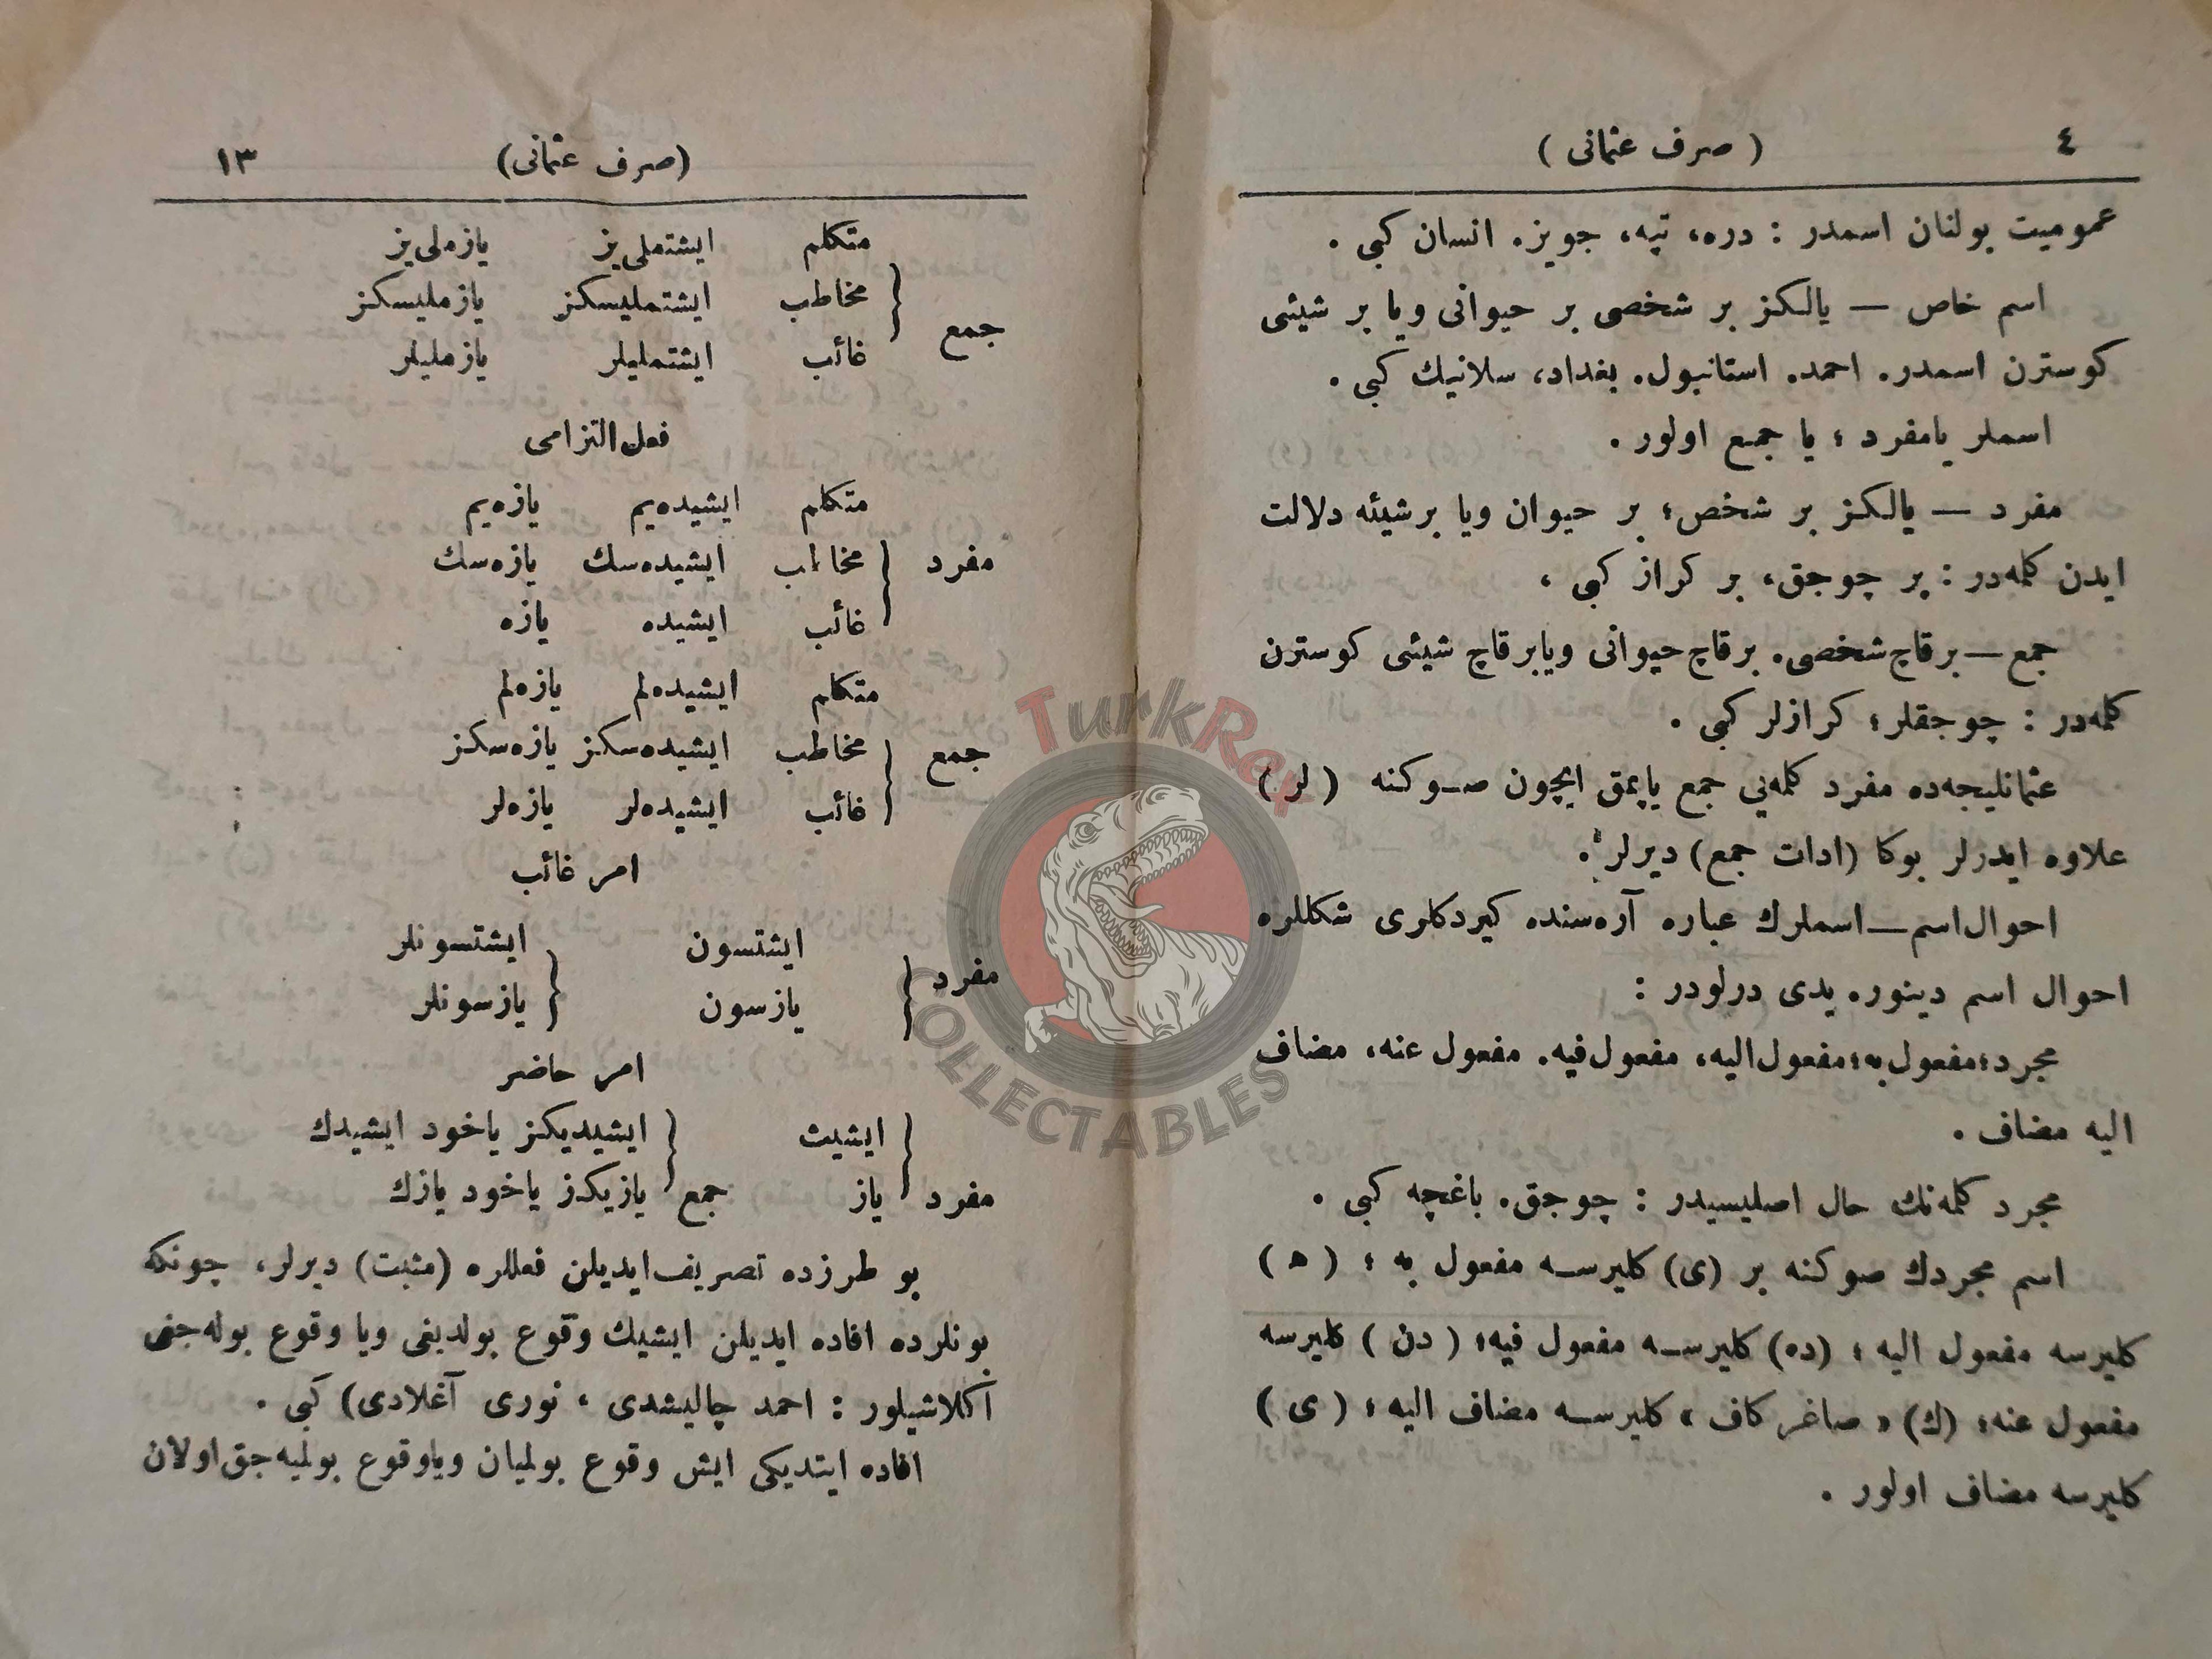 ٤ ( صرف عثمانى )
عموميت بولنان اسمدر : دره، تپه، جويز. انسان كبى .
اسم خاص — يالكز بر شخصى بر حيوانى ويا بر شيئى
كوسترن اسمدر. احمد. استانبول. بغداد، سلانيك كبى .
اسملر يامفرد ؛ يا جمع اولور .
مفرد — يالكز بر شخص؛ بر حيوان ويا برشيئه دلالت
ايدن كلمه‌در : بر چوجق، بر كراز كبى ،
جمع — برقاچ شخصى. برقاچ حيوانى ويابرقاچ شيئى كوسترن
كلمه‌در : چوجقلر؛ كرازلر كبى .
عثمانليجه‌ده مفرد كلمه‌يى جمع ياپمق ايچون صوكنه ( لر )
علاوه ايدرلر بوكا (ادات جمع) ديرلر .
احوال اسم — اسملرك عباره آره‌سنده كيردكلرى شكللره
احوال اسم دينور. يدى درلودر :
مجرد؛ مفعول به؛ مفعول اليه، مفعول فيه. مفعول عنه، مضاف
اليه مضاف .
مجرد كلمه‌نك حال اصليسيدر : چوجق. باغچه كبى .
اسم مجردك صوكنه بر (ى) كليرسه مفعول به ؛ ( ه )
كليرسه مفعول اليه ؛ (ده) كليرسه مفعول فيه؛ ( دن ) كليرسه
مفعول عنه؛ (ك) « صاغر كاف » كليرسه مضاف اليه ؛ ( ى )
كليرسه مضاف اولور .
(صرف عثمانى) ١٣
متكلم ايشتملى‌يز يازملى‌يز
جمع { مخاطب ايشتمليسكز يازمليسكز
غائب ايشتمليلر يازمليلر
فعل التزامى
متكلم ايشيده‌يم يازه‌يم
مفرد { مخاطب ايشيده‌سك يازه‌سك
غائب ايشيده يازه
متكلم ايشيده‌لم يازه‌لم
جمع { مخاطب ايشيده‌سكز يازه‌سكز
غائب ايشيده‌لر يازه‌لر
امر غائب
ايشتسون ايشتسونلر
مفرد { يازسون { يازسونلر
امر حاضر
ايشيت ايشيديكز ياخود ايشيدك
مفرد { ياز جمع { يازيكز ياخود يازك
بو طرزده تصريف ايديلن فعللره (مثبت) ديرلر، چونكه
بونلرده افاده ايديلن ايشيك وقوع بولديغى ويا وقوع بوله‌جغى
آكلاشيلور : احمد چاليشدى ، نورى آغلادى) كبى .
افاده ايتديكى ايش وقوع بولميان وياوقوع بولميه‌جق اولان
TurkRex
COLLECTABLES